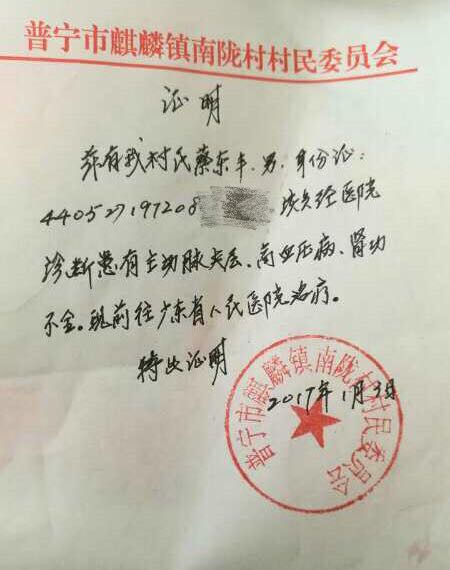 普宁市麒麟镇南陇村村民委员会
证明
兹有我村民蔡东丰、男、身份证：
440527197208 经医院
诊断患有主动脉夹层、高血压病、肾功
不全。现前往广东省人民医院治疗。
特此证明
2017年1月3日
普宁市麒麟镇南陇村村民委员会